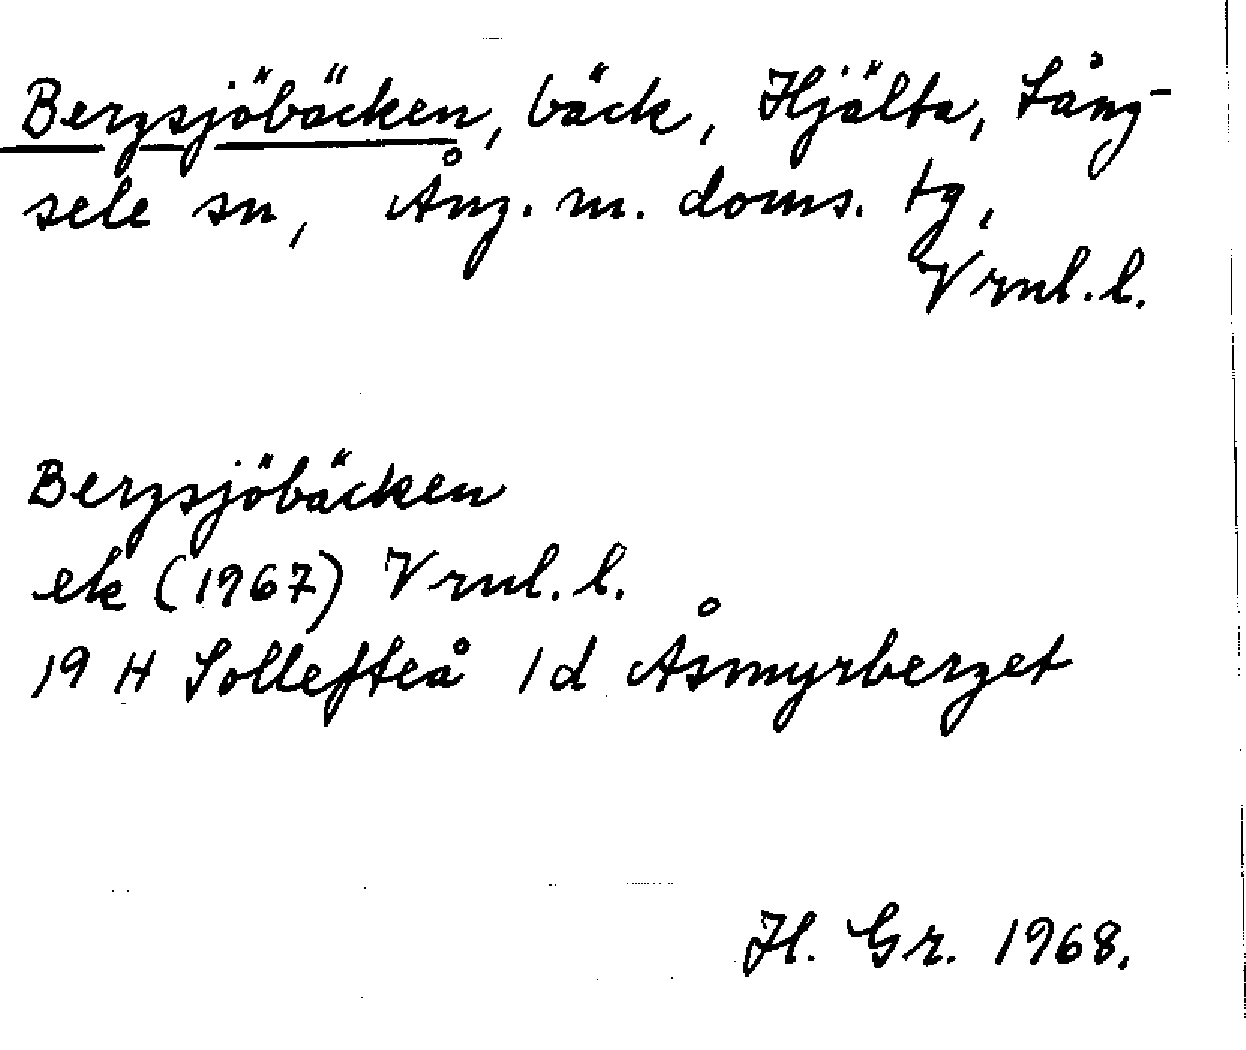 Bergsjöbäcken, bäck, Hjälta, Lång-
sele sn, Ång. m. doms. tg,
Vrnl. l.
Bergsjöbäcken
ek (1967) Vrnl. l.
19 H Sollefteå 1d Åsmyrberget
H. Gr. 1968.